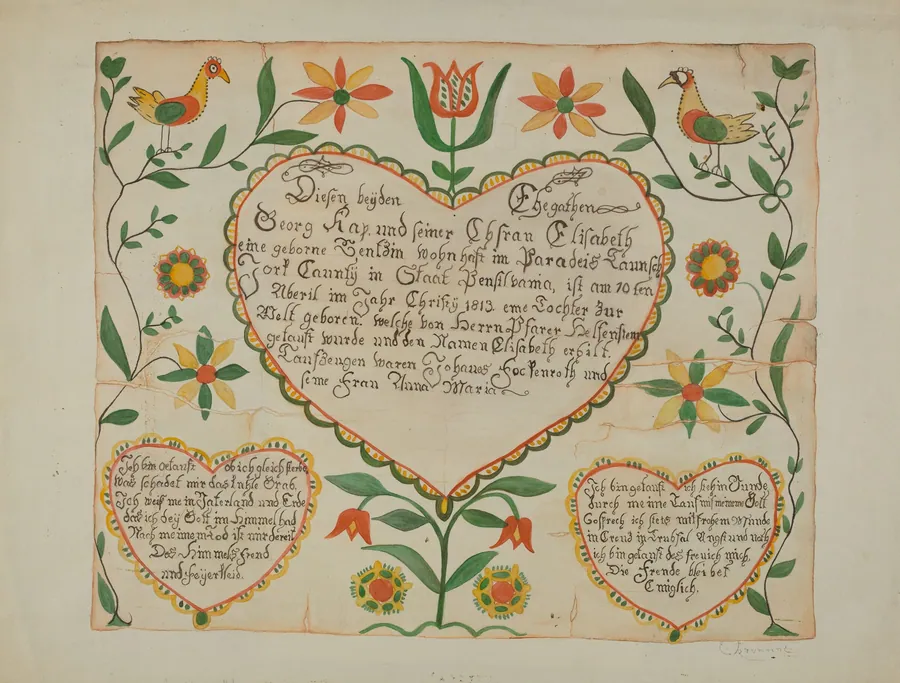 Diesen beyden Ehegathen
Georg Kap. und seiner Ehfrau Elisabeth
eine geborne wohnhaft im Paradeis Taunsch
York Caunty in Staat Pensilvania, ist am 10 ten
Aberil im Jahr Christy 1813 eine Tochter zur
Welt geboren. welche von Herrn Pfarer Helfenstein
getauft wurde und den Namen Elisabeth erhilt.
Taufzeugen waren Johanes Fockenroth und
seine Frau Anna Maria
Ich bin getauft ob ich gleich sterbe
was schadet mir das kühle Grab
Ich weiß mein Vaterland und Erbe
das ich bey Gott im Himmel hab
Nach meinem Tod ist mir bereit
Des Himmels Freud
und Feyerkleid.
Ich bin getauft ich steh im Bunde
durch meine Tauf mit meinem Gott
So sprech ich stets mit frohem Munde
in Creuz in Trübsal Angst und Noth
ich bin getauft des freu ich mich,
Die Freude bleibet
Ewiglich.